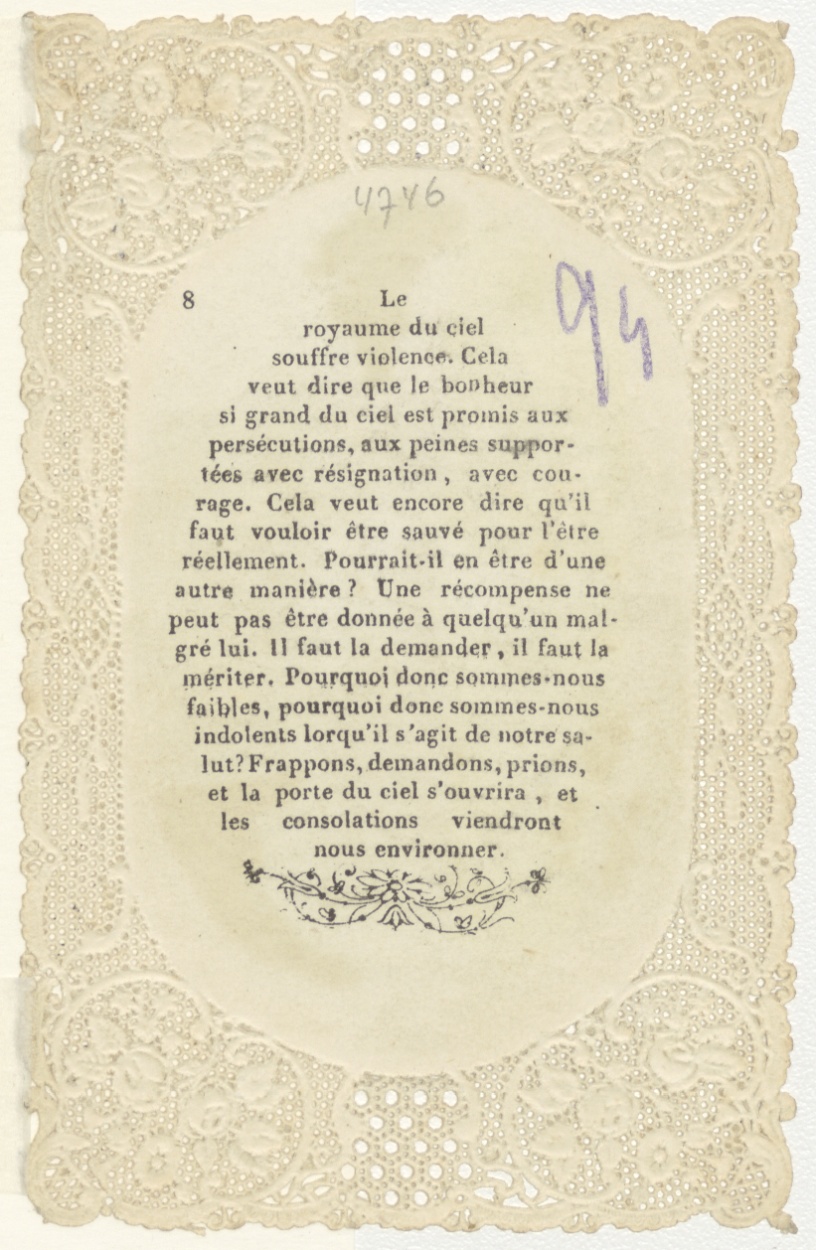 4746
94
8 Le
royaume du ciel
souffre violence. Cela
veut dire que le bonheur
si grand du ciel est promis aux
persécutions, aux peines suppor-
tées avec résignation, avec cou-
rage. Cela veut encore dire qu'il
faut vouloir être sauvé pour l'être
réellement. Pourrait-il en être d'une
autre manière? Une récompense ne
peut pas être donnée à quelqu'un mal-
gré lui. Il faut la demander, il faut la
mériter. Pourquoi donc sommes-nous
faibles, pourquoi donc sommes-nous
indolents lorqu'il s'agit de notre sa-
lut? Frappons, demandons, prions,
et la porte du ciel s'ouvrira, et
les consolations viendront
nous environner.